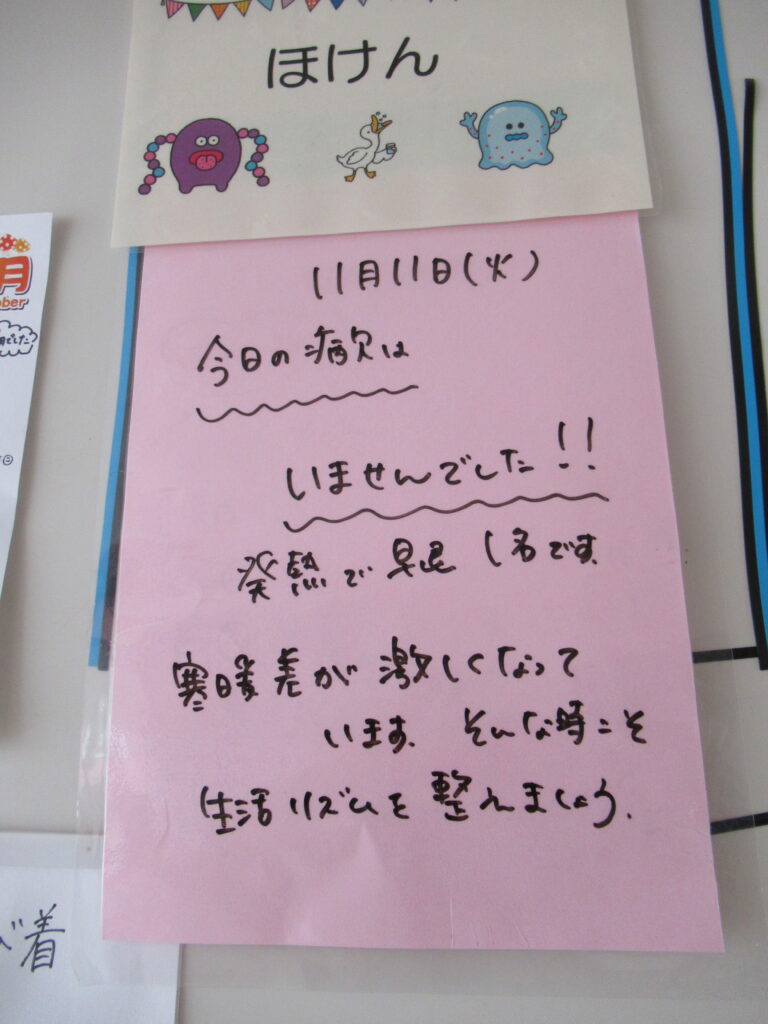 ほけん
11月11日(火)
今日の病欠は
いませんでした!!
発熱で早退1名です。
寒暖差が激しくなって
います。そんな時こそ
生活リズムを整えましょう。
月
ber
着